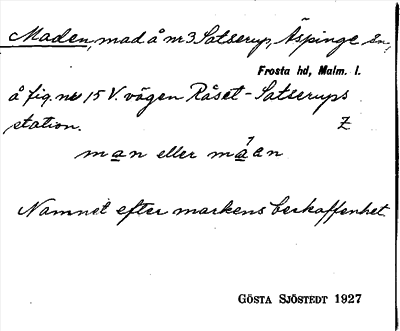 Maden, mad å nr 3 Satserup, Äspinge sn,
Frosta hd, Malm. l.
å fig. nr 15 V. vägen Råset-Satserups
station. Z
man eller måan
Namnet efter markens beskaffenhet
GÖSTA SJÖSTEDT 1927